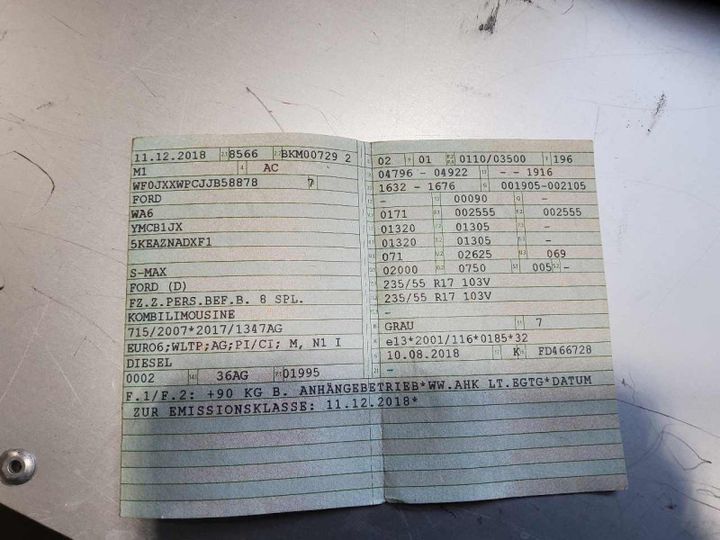 11.12.2018 8566 BKM00729 2
M1 AC
WF0JXXWPCJJB58878 7
FORD
WA6
YMCB1JX
5KEAZNADXF1
S-MAX
FORD (D)
FZ.Z.PERS.BEF.B. 8 SPL.
KOMBILIMOUSINE
715/2007*2017/1347AG
EURO6;WLTP;AG;PI/CI; M, N1 I
DIESEL
0002 36AG 01995
02 01 0110/03500 196
04796 - 04922 - - 1916
1632 - 1676 001905-002105
- 00090 -
0171 002555 002555
01320 01305 -
01320 01305 -
071 02625 069
02000 0750 005 -
235/55 R17 103V
235/55 R17 103V
-
GRAU 7
e13*2001/116*0185*32
10.08.2018 K FD466728
-
F.1/F.2: +90 KG B. ANHÄNGEBETRIEB*WW.AHK LT.EGTG*DATUM
ZUR EMISSIONSKLASSE: 11.12.2018*